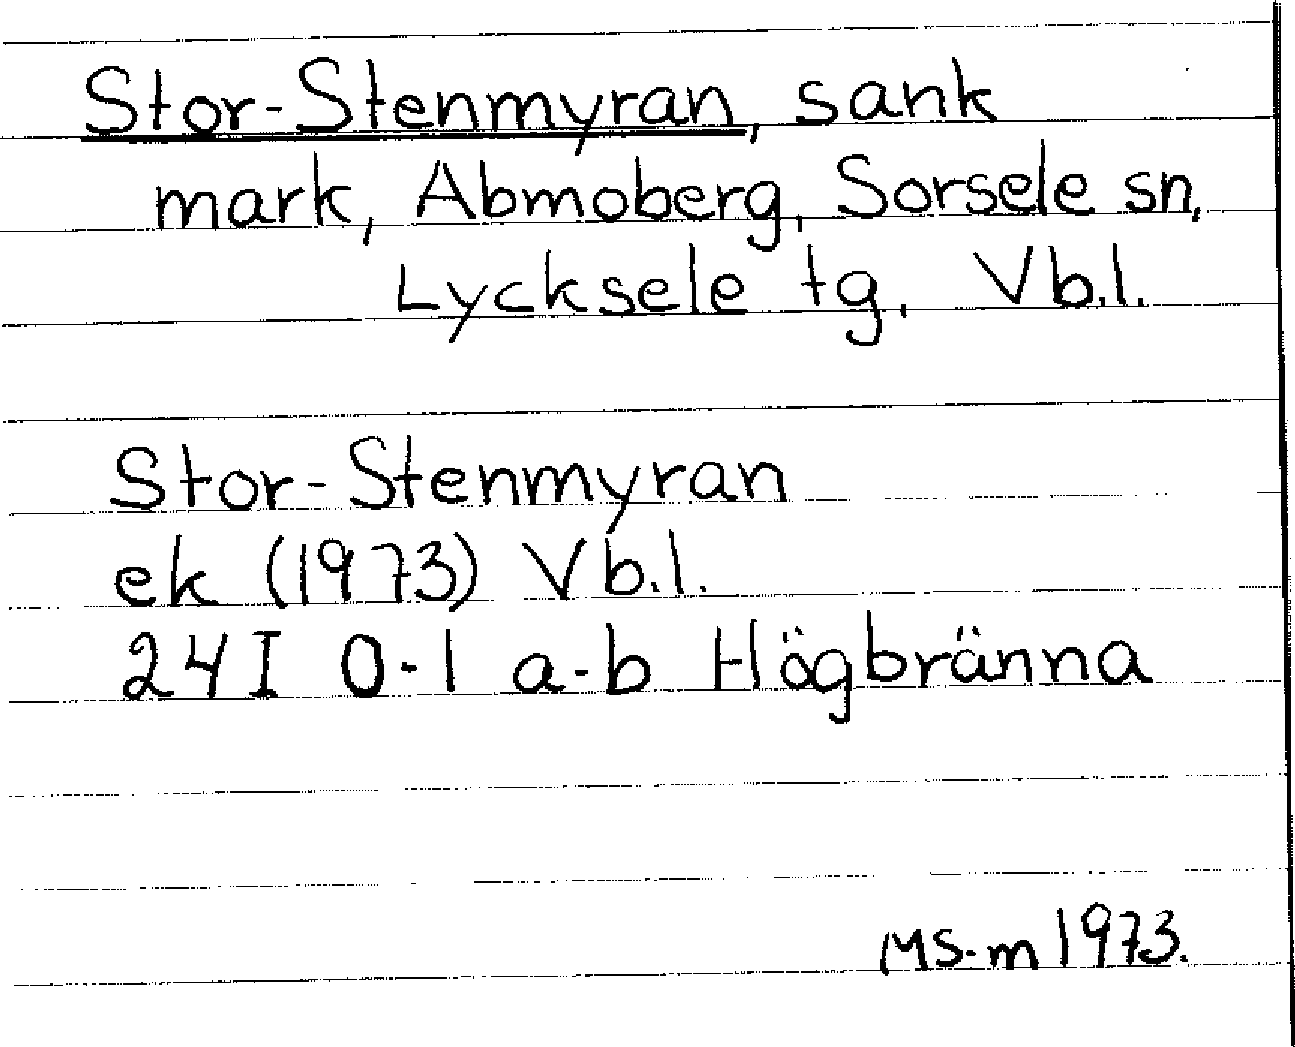 Stor-Stenmyran, sank
mark, Abmoberg, Sorsele sn,
Lycksele tg, Vb.l.
Stor-Stenmyran
ek (1973) Vb.l.
24I 0-1 a-b Högbränna
MS-m 1973.